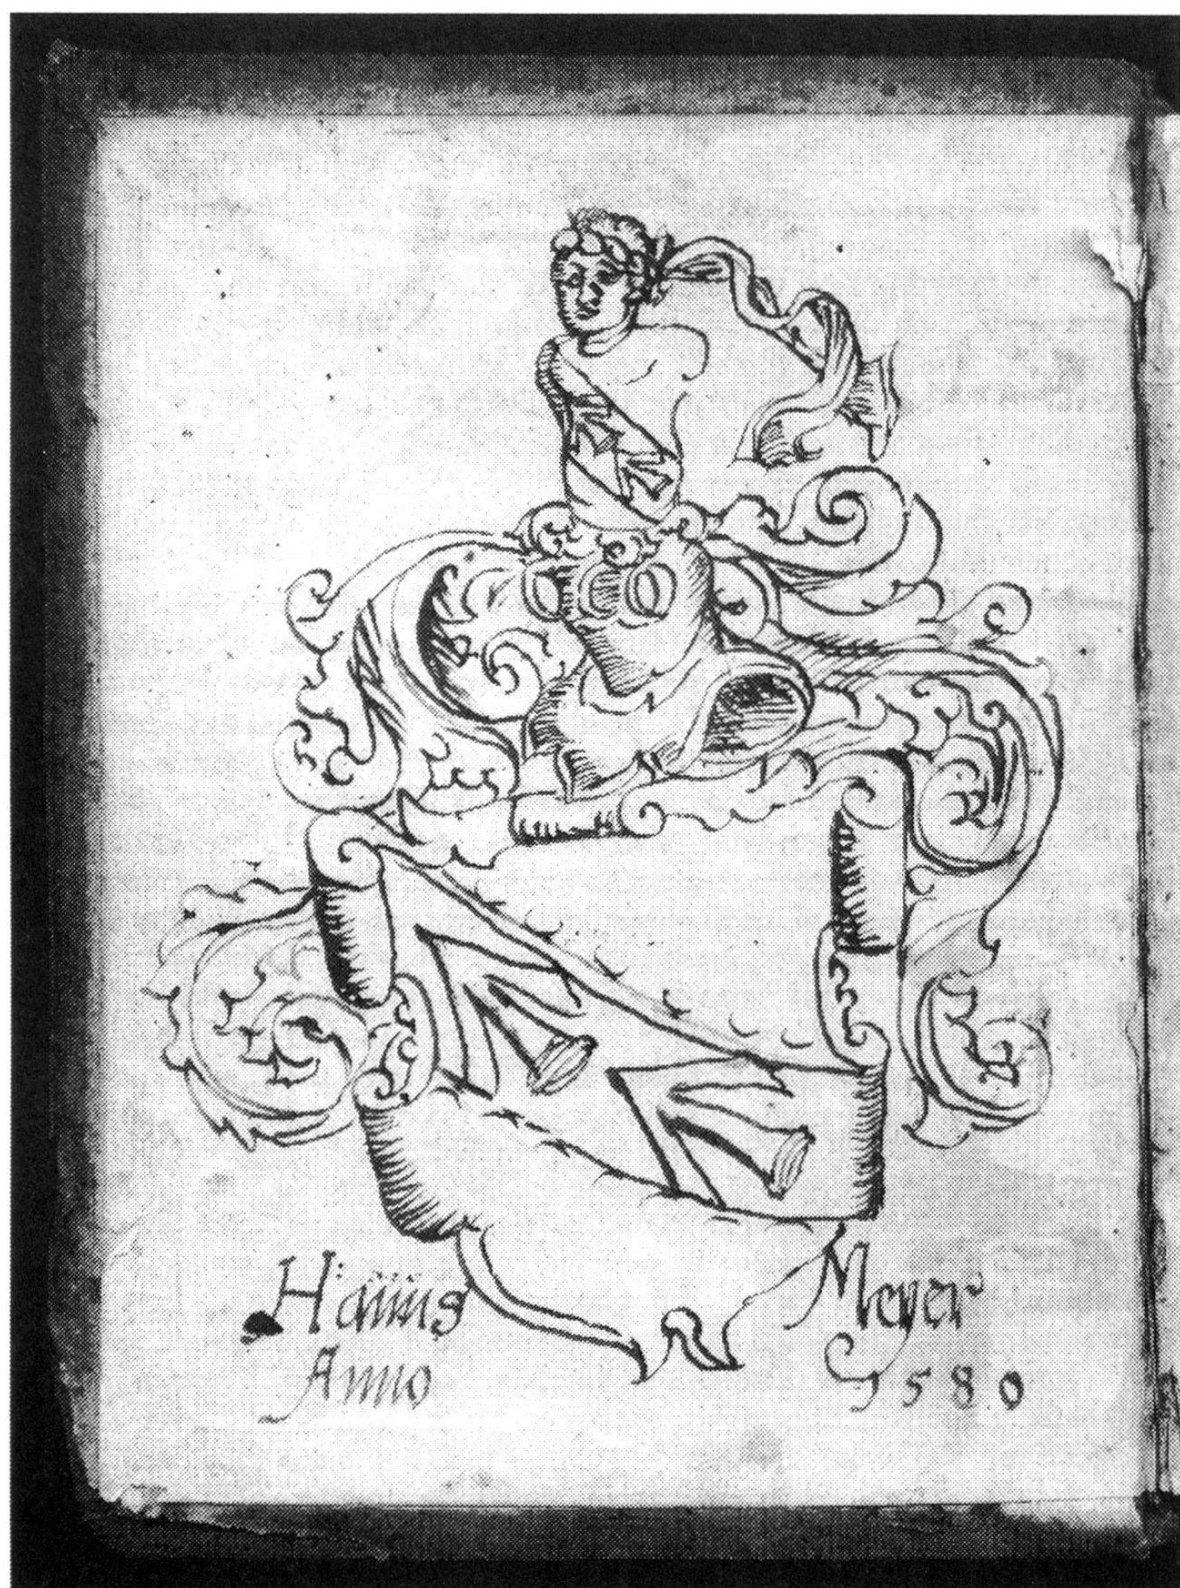 Hanns Meyer
Anno 1580